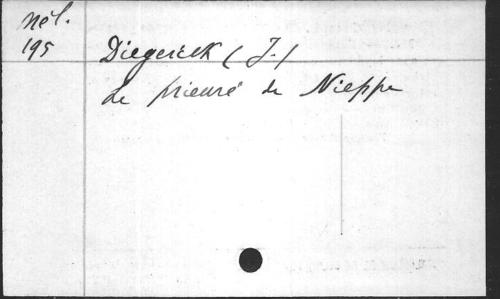 Mél.
195
Diegerick (J.)
Le prieuré de Nieppe